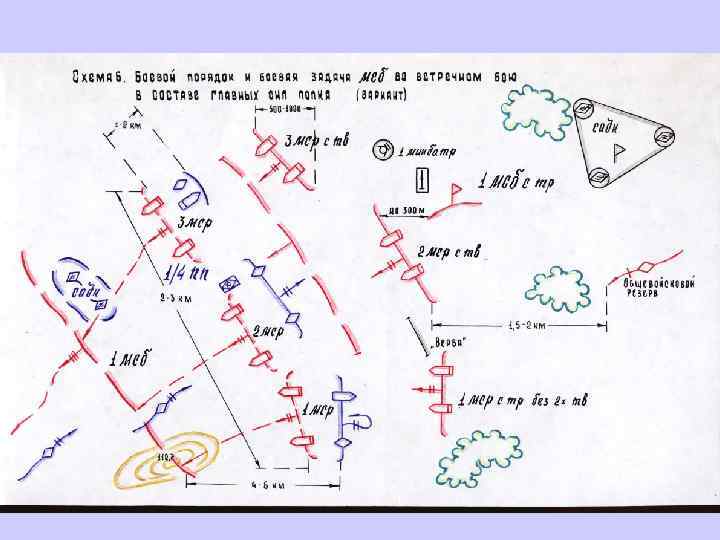 Схема 6. Боевой порядок и боевая задача мсб во встречном бою
в составе главных сил полка (вариант)
500-1000
1-2 км
3 мср с тв
1 минбатр
садн
1 мсб с тр
до 300 м
3 мср
2 мср с тв
1/4 пп
садн
2-3 км
общевойсковой
резерв
1,5-2 км
2 мср
"Верба"
1 мсб
1 мср
1 мср с тр без 2х тв
110,2
4-6 км